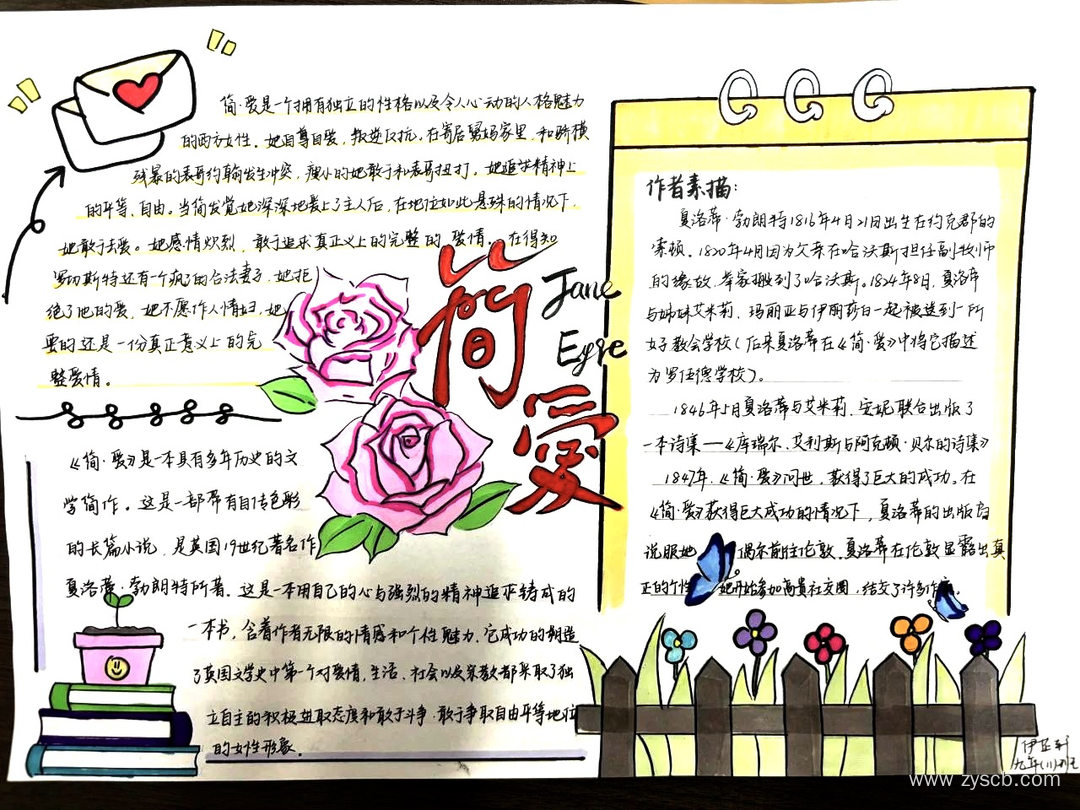 简·爱是一个拥有独立的性格以及令人心动的人格魅力
的西方女性。她自尊自爱，叛逆反抗，在寄居舅妈家里，和骄横
残暴的表哥约翰发生冲突，瘦小的她敢于和表哥扭打。她追求精神上
的平等、自由。当简发觉她深深地爱上了主人后，在地位如此悬殊的情况下，
她敢于去爱。她感情炽烈，敢于追求真正义上的完整的爱情。在得知
罗切斯特还有个疯了的合法妻子，她拒
绝了他的爱，她不愿作人情妇，她
要的还是一份真正意义上的完
整爱情。
简爱
Jane
Eyre
《简·爱》是一本具有多年历史的文
学简作。这是一部带有自传色彩
的长篇小说，是英国19世纪著名作
夏洛蒂·勃朗特所著。这是一本用自己的心与强烈的精神追求铸成的
一本书，含着作者无限的情感和个性魅力。它成功的塑造
了英国文学史中第一个对爱情，生活、社会以及宗教都采取了独
立自主的积极进取态度和敢于斗争，敢于争取自由平等地位
的女性形象。
作者素描：
夏洛蒂·勃朗特1816年4月21日出生在约克郡的
索顿。1820年4月因为父亲在哈沃斯担任副牧师
的缘故，举家搬到了哈沃斯。1824年8月，夏洛蒂
与姊妹艾米莉、玛丽亚与伊丽莎白一起被送到一所
女子教会学校（后来夏洛蒂在《简·爱》中将它描述
为罗伍德学校）。
1846年5月夏洛蒂与艾米莉、安妮联合出版了
一本诗集——《库瑞尔、艾利斯与阿克顿·贝尔的诗集》
1847年，《简·爱》问世，获得了巨大的成功，在
《简·爱》获得巨大成功的情况下，夏洛蒂的出版商
说服她 偶尔前往伦敦。夏洛蒂在伦敦显露出真
正的个性 她开始参加高贵社交圈，结交了许多作
九年(11)班
www.zyscb.com